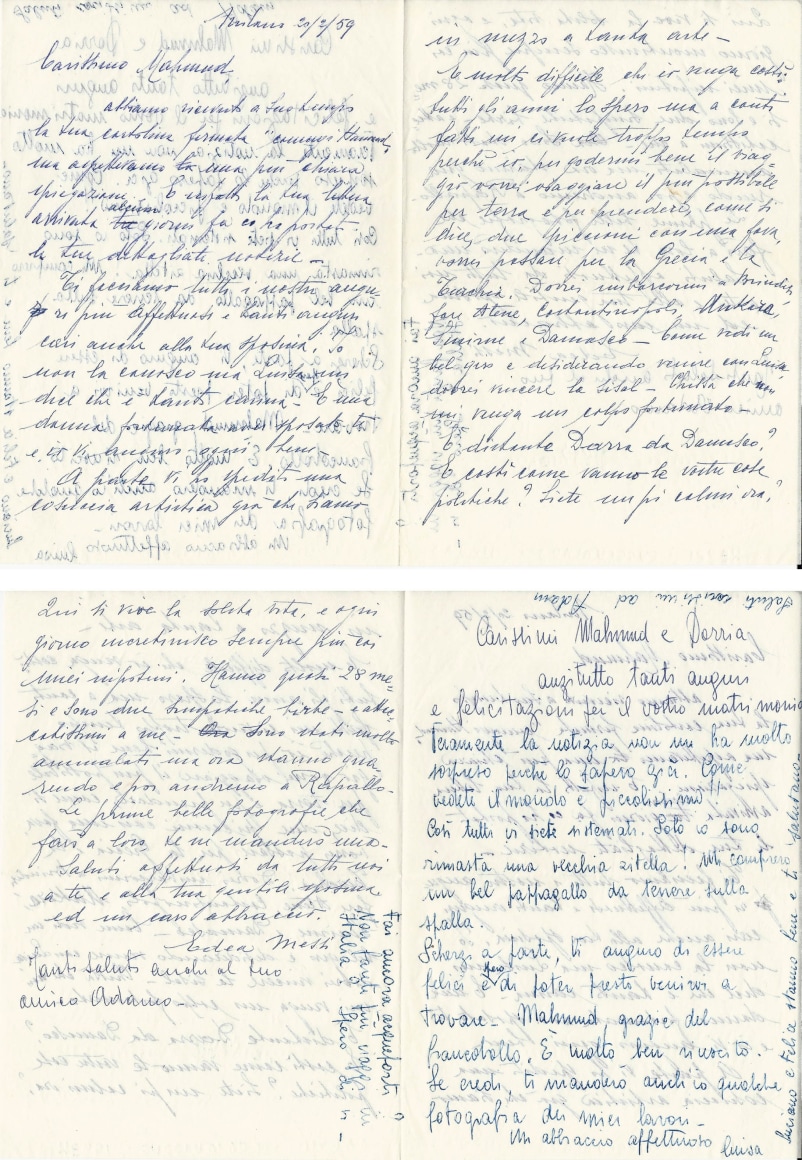 Milano 20/2/59
Carissimo Mahmud
abbiamo ricevuto a suo tempo
la tua cartolina firmata "commos Hamud,
ma aspettavamo la una più chiara
spiegazione. E infatti la tua lettera
arrivata alcuni giorni fa ce ha portato
le tue dettagliate notizie -
Ti facciamo tutti i nostri augu-
ri più affettuosi e tanti auguri
cari anche alla tua sposina, io
non la conosco ma
dice che è tanto carina - È una
donna fortunata sposata te
e vi auguro ogni bene
A parte vi ho spedito una
cosuccia artistica già che siamo
in mezzo a tanta arte -
È molto difficile che io venga costì
tutti gli anni lo spero ma a conti
fatti mi ci vuole troppo tempo
perchè io, per godermi bene il viag-
gio vorrei viaggiare il più possibile
per terra e per prendere, come si
dice, due piccioni con una fava,
vorrei passare per la Grecia e la
Turchia. Dovrei imbarcarmi a Brindisi,
fare Atene, Costantinopoli, Ankara,
Smirne e Damasco - Come vedi un
bel giro e desiderando venire con Luisa
dovrei vincere la Sisal - Chissà che non
mi venga un colpo fortunato
È distante Darra da Damasco?
E costì come vanno le vostre cose
politiche? Siete un pò calmi ora?
Qui si vive la solita vita, e ogni
giorno incretinisco sempre più coi
miei nipotini. Hanno quasi 28 me-
si e sono due simpatiche birbe - e attac-
catissimi a me - Sono stati molto
ammalati ma ora stanno gua
rendo e poi andremo a Rapallo -
Le prime belle fotografie che
farò a loro, te ne manderò una -
Saluti affettuosi da tutti noi
a te e alla tua gentile sposina
ed un caro abbraccio.
Edea Messi
Tanti saluti anche al tuo
amico Adamo -
Fai ancora acqueforti?
Non fanti più viaggi in
Italia? Spero di sì
Saluti carissimi ad Adam
Carissimi Mahmud e Dorria,
anzitutto tanti auguri
e felicitazioni per il vostro matrimonio
Veramente la notizia non mi ha molto
sorpreso perchè lo sapevo già. Come
vedete il mondo è piccolissimo!!
Così tutti vi siete sistemati. Solo io sono
rimasta una vecchia zitella! Mi comprerò
un bel pappagallo da tenere sulla
spalla.
Scherzi a parte, ti auguro di essere
felici e spero di poter presto venirvi a
trovare - Mahmud, grazie del
francobollo. È molto ben riuscito.
Se credi, ti manderò anch'io qualche
fotografia dei miei lavori -
Un abbraccio affettuoso Luisa
Luciano e Felice stanno bene e ti salutano -